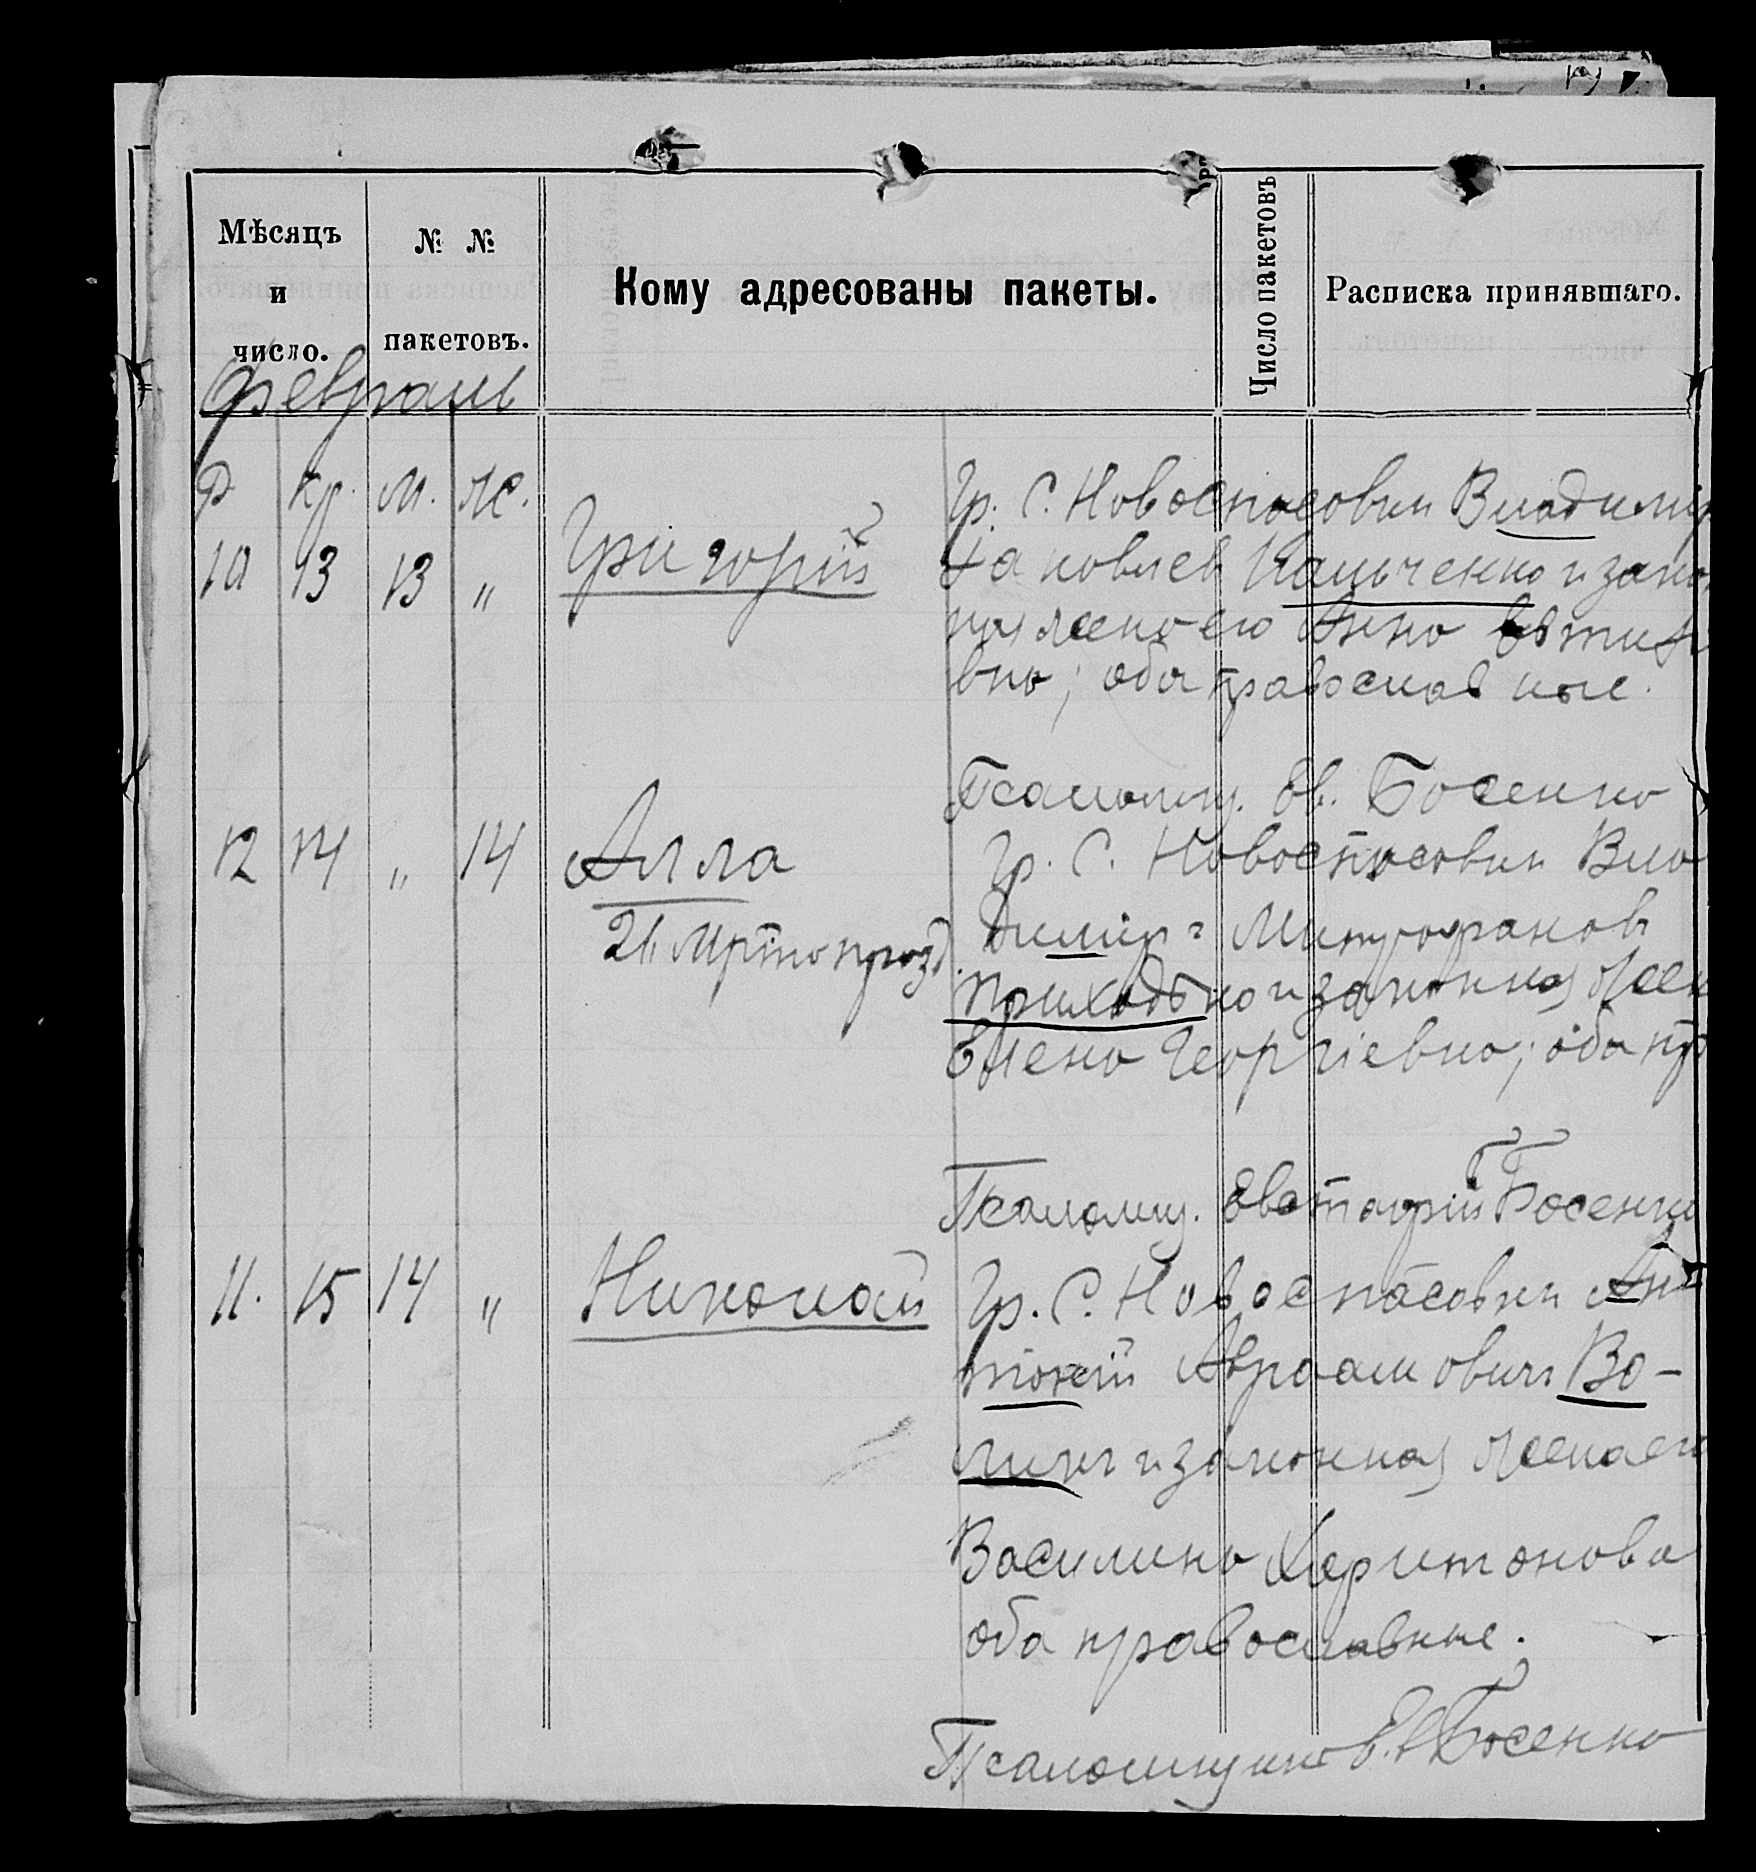 Мѣсяцъ и число.
№ № пакетовъ.
Кому адресованы пакеты.
Число пакетовъ
Расписка принявшаго.
Февраль
Р. Кр. М. Ж.
10 13 13 „ Григорій
Гр. С. Новоспасовки Владимір
Яковлев Кальченко и закон
ная жена его Анна
вна; оба православные.
Псаломщ. Ев. Босенко
12 14 „ 14 Алла
26 Мрта празд.
Гр. С. Новоспасовки Вла
диміръ Митрофановъ
Приходько и законная жен
Елена Георгіевна; оба пр
Псаломщ. Евстафій Босенко
11. 15 14 „ Николай
Гр. С. Новоспасовки Ан
тоній Авраамовичъ Во-
ликъ и законная жена его
Василина Харитонова
оба православные.
Псаломщикъ Ев. Босенко